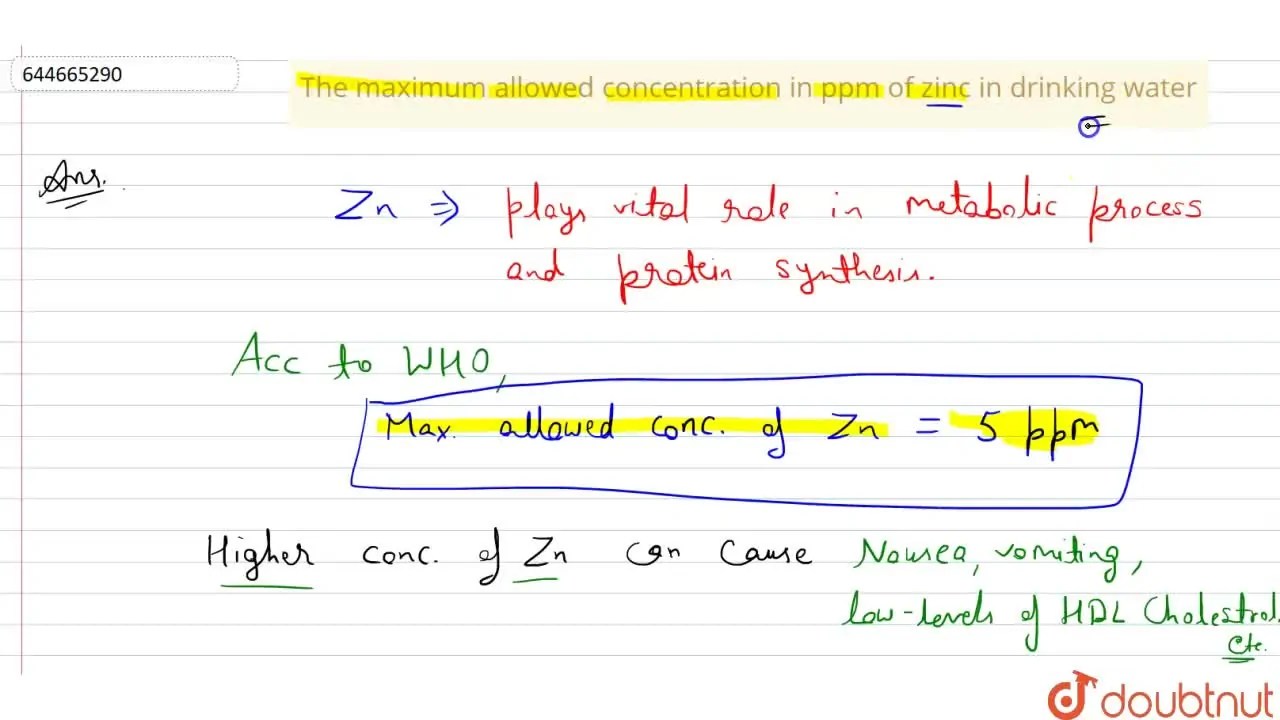 644665290
The maximum allowed concentration in ppm of zinc in drinking water
Ans.
Zn ⇒ plays vital role in metabolic process
and protein synthesis.
Acc to WHO,
Max. allowed conc. of Zn = 5 ppm
Higher conc. of Zn can cause Nausea, vomiting,
low-levels of HDL Cholestrol.
etc.
doubtnut